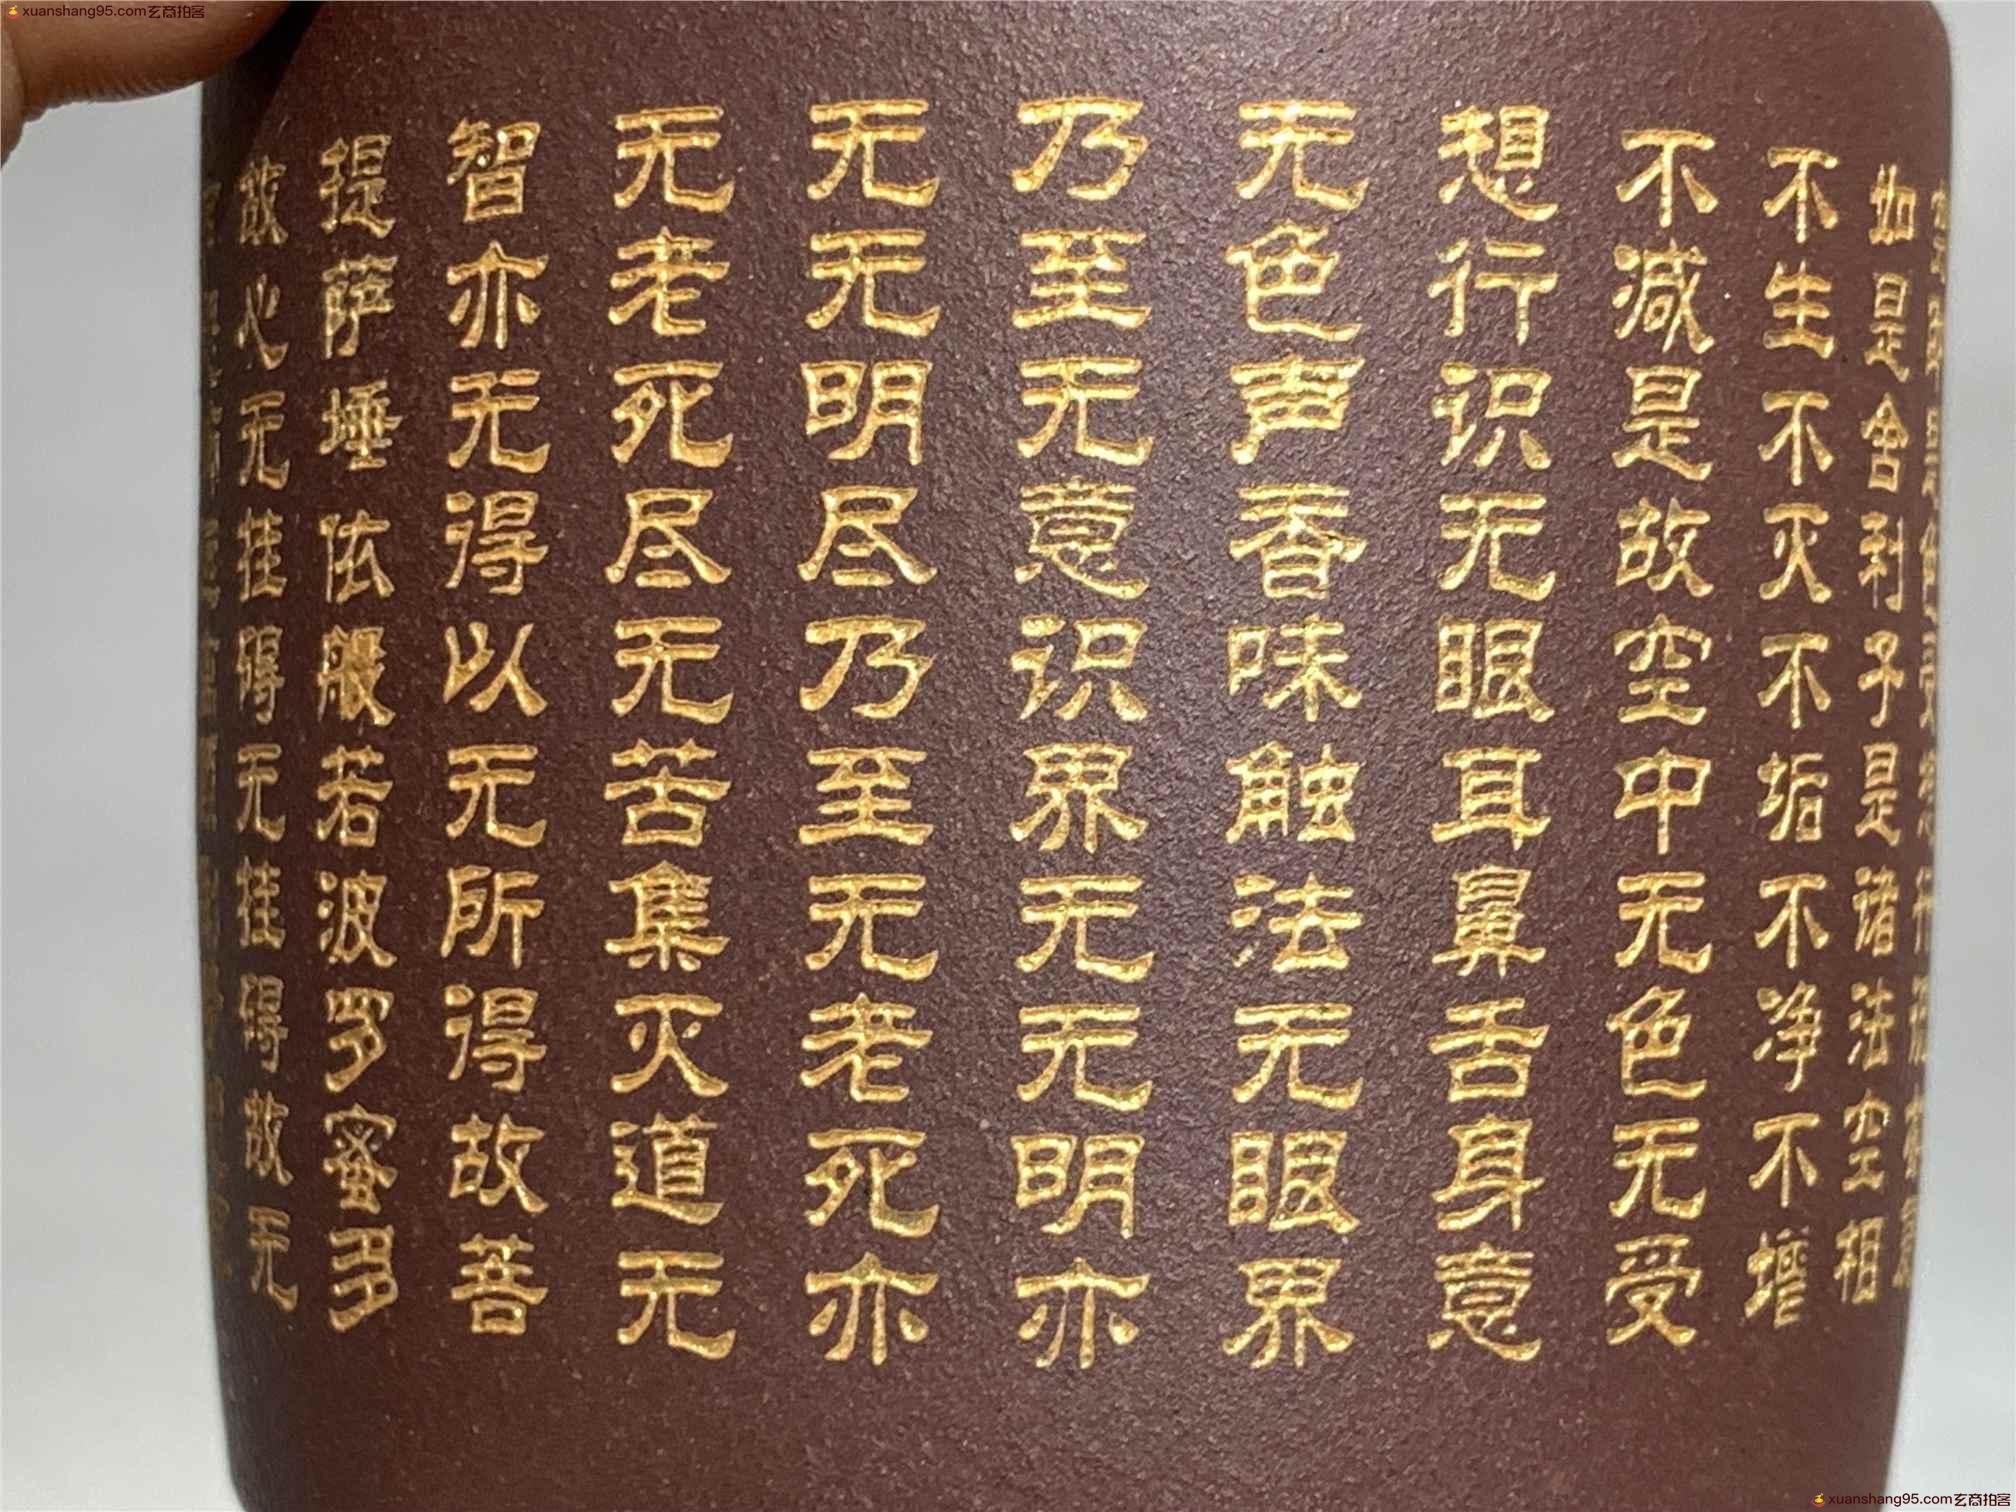 xuanshang95.com玄商拍客
空即是色受想行识亦
如是舍利子是诸法空相
不生不灭不垢不净不增
不减是故空中无色无受
想行识无眼耳鼻舌身意
无色声香味触法无眼界
乃至无意识界无无明亦
无无明尽乃至无老死亦
无老死尽无苦集灭道无
智亦无得以无所得故菩
提萨埵依般若波罗蜜多
故心无挂碍无挂碍故无
xuanshang95.com玄商拍客